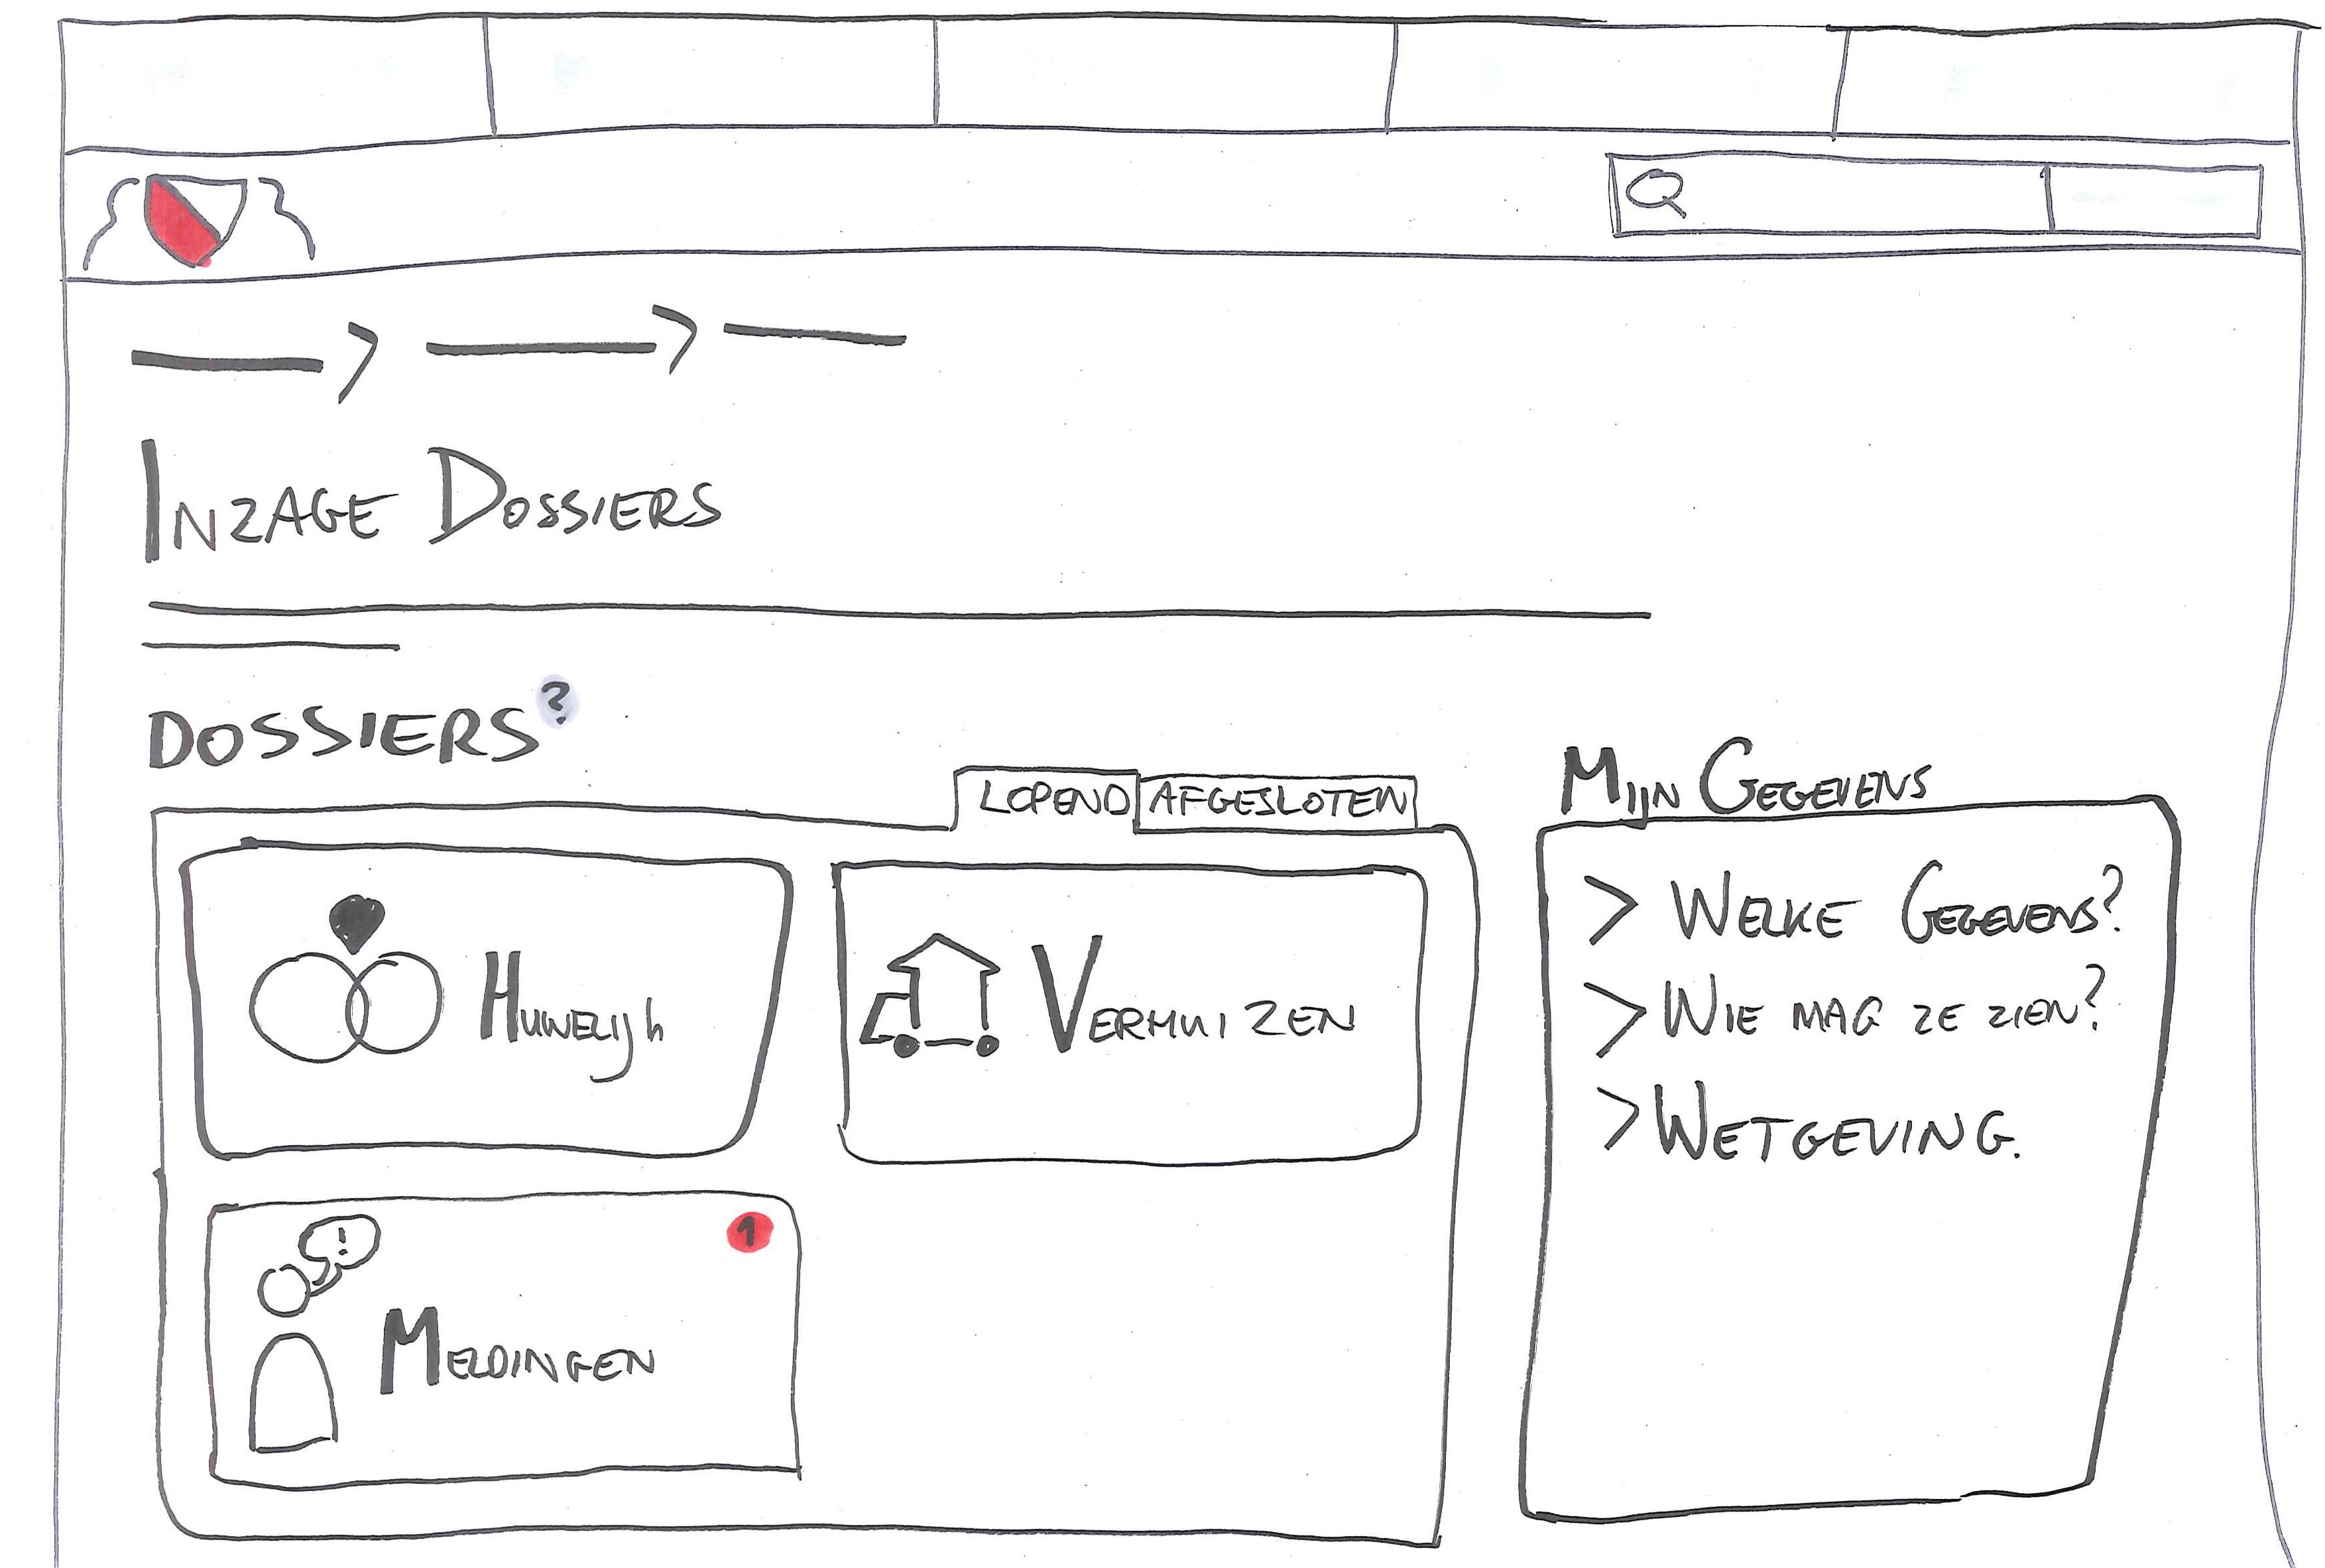 INZAGE DOSSIERS
DOSSIERS?
LOPEND AFGESLOTEN
HUWELIJK
VERHUIZEN
1
MELDINGEN
MIJN GEGEVENS
> WELKE GEGEVENS?
> WIE MAG ZE ZIEN?
> WETGEVING.